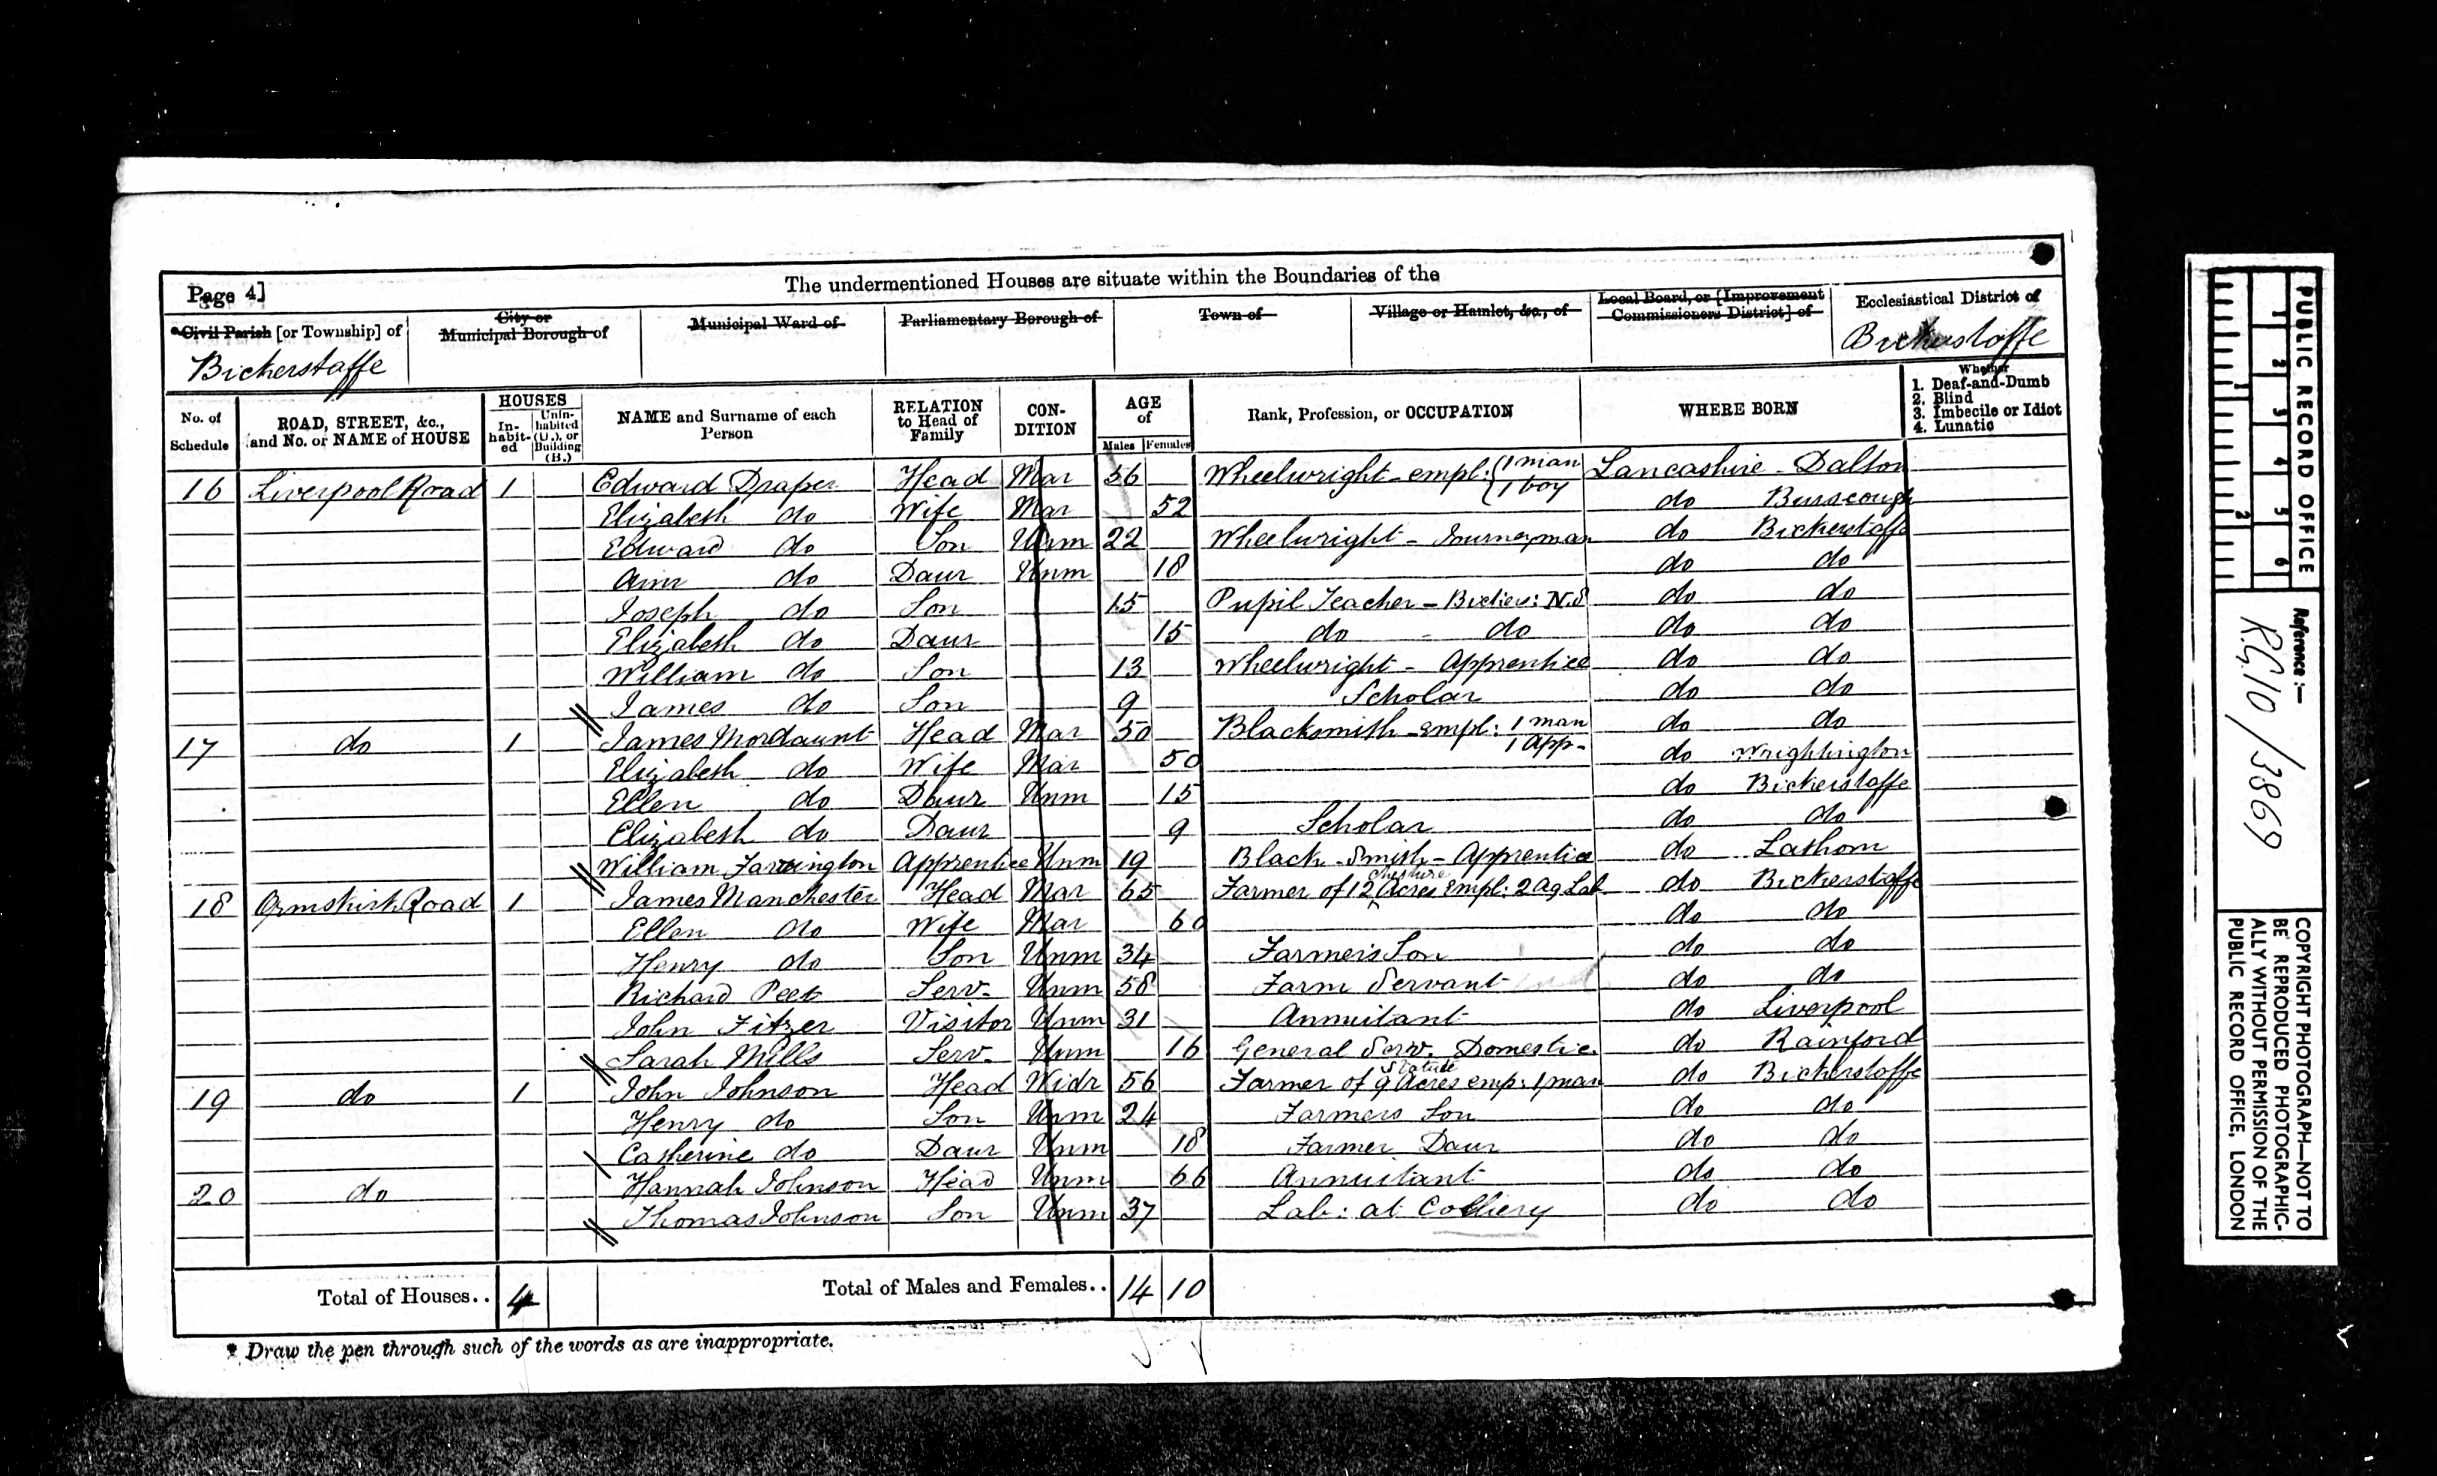 Page 4]
The undermentioned Houses are situate within the Boundaries of the
*Civil Parish [or Township] of
City or Municipal Borough of
Municipal Ward of
Parliamentary Borough of
Town of
Village or Hamlet, &c., of
Local Board, or [Improvement Commissioners District] of
Ecclesiastical District of
Bickerstaffe
Bickerstaffe
No. of Schedule
ROAD, STREET, &c., and No. or NAME of HOUSE
HOUSES
In-habit-ed
Unin-habited (U.), or Building (B.)
NAME and Surname of each Person
RELATION to Head of Family
CON-DITION
AGE of
Males
Females
Rank, Profession, or OCCUPATION
WHERE BORN
Whether
1. Deaf-and-Dumb
2. Blind
3. Imbecile or Idiot
4. Lunatic
16 Liverpool Road 1 Edward Draper Head Mar 56 Wheelwright - empl: {1 man {1 boy Lancashire - Dalton
Elizabeth do Wife Mar 52 do Burscough
Edward do Son Unm 22 Wheelwright - Journeyman do Bickerstaffe
Ann do Daur Unm 18 do do
Joseph do Son 15 Pupil Teacher - Bickers: N.S do do
Elizabeth do Daur 15 do - do do do
William do Son 13 Wheelwright - Apprentice do do
James do Son 9 Scholar do do
17 do 1 James Mordaunt Head Mar 50 Blacksmith - empl: 1 man 1 App- do do
Elizabeth do Wife Mar 50 do Wrightington
Ellen do Daur Unm 15 do Bickerstaffe
Elizabeth do Daur 9 Scholar do do
William Farrington Apprentice Unm 19 Black-Smith - Apprentice do Lathom
18 Ormskirk Road 1 James Manchester Head Mar 65 Farmer of 12 Cheshire Acres Empl: 2 Ag Lab do Bickerstaffe
Ellen do Wife Mar 60 do do
Henry do Son Unm 34 Farmers Son do do
Richard Peet Serv- Unm 58 Farm Servant do do
John Fitzer Visitor Unm 31 Annuitant do Liverpool
Sarah Mills Serv- Unm 16 General Serv. Domestic do Rainford
19 do 1 John Johnson Head Widr 56 Farmer of 9 Statute Acres emp: 1 man do Bickerstaffe
Henry do Son Unm 24 Farmers Son do do
Catherine do Daur Unm 18 Farmer Daur do do
20 do Hannah Johnson Head Unm 66 Annuitant do do
Thomas Johnson Son Unm 37 Lab: at Colliery do do
Total of Houses.. 4
Total of Males and Females.. 14 10
* Draw the pen through such of the words as are inappropriate.
PUBLIC RECORD OFFICE
1 2 3 4 5 6
1 2
Reference :-
R.G.10/3869
COPYRIGHT PHOTOGRAPH—NOT TO
BE REPRODUCED PHOTOGRAPHIC-
ALLY WITHOUT PERMISSION OF THE
PUBLIC RECORD OFFICE, LONDON